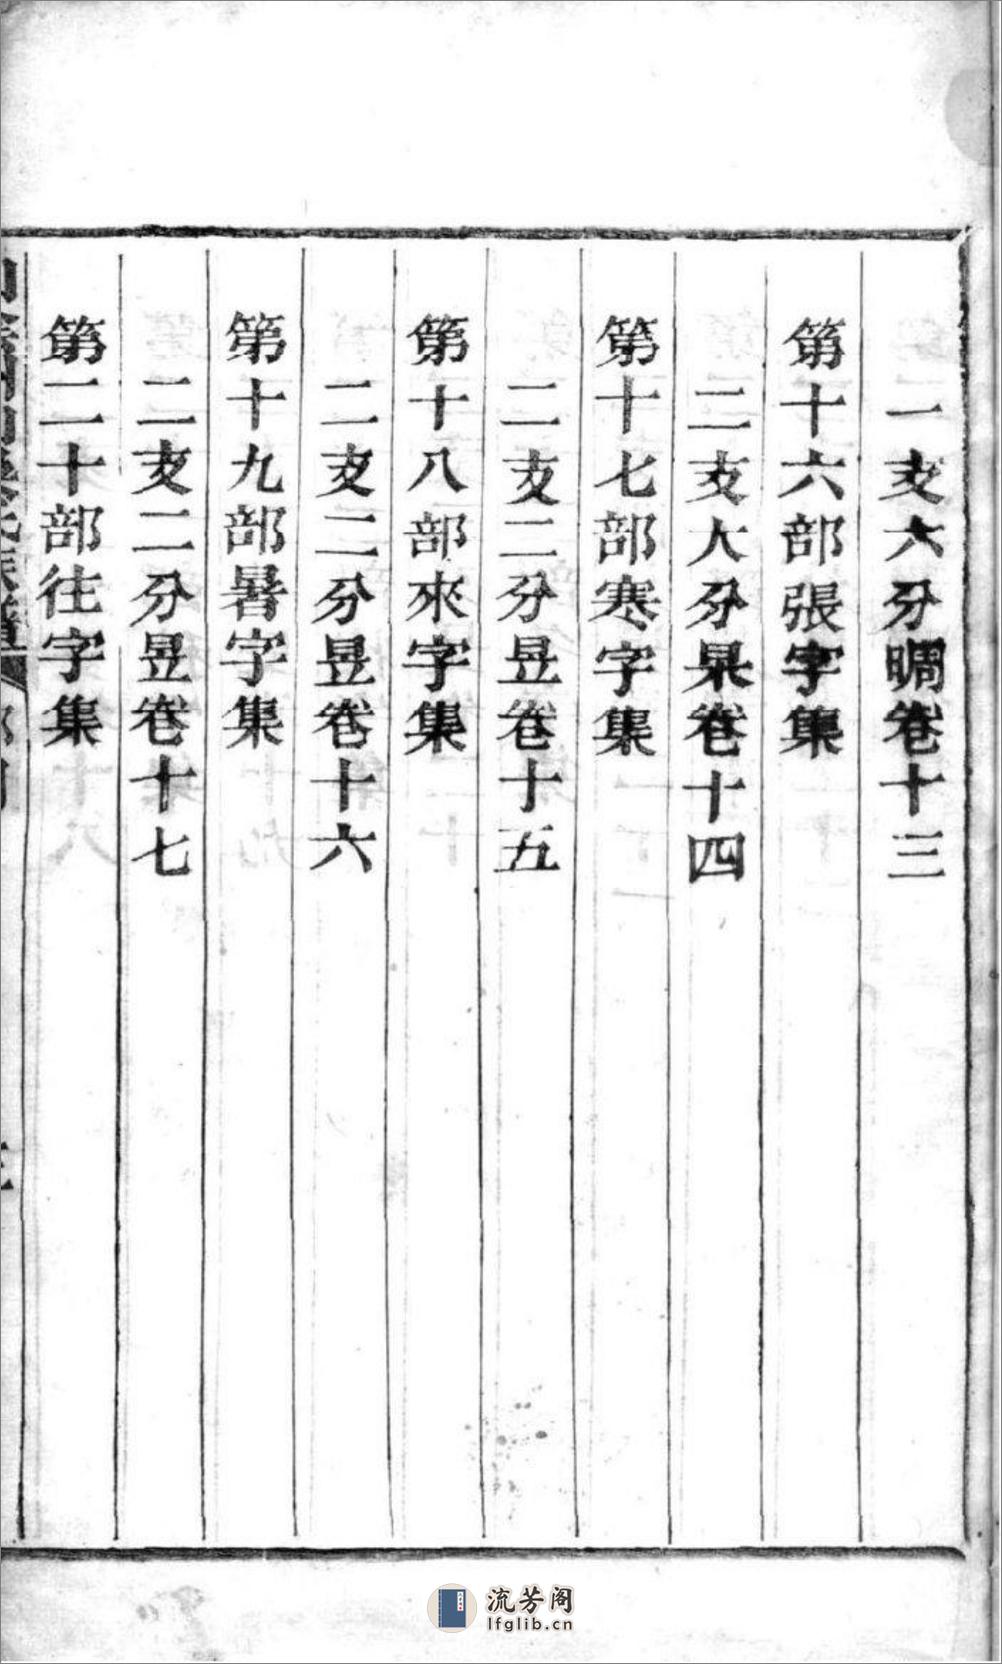 一支六分晭卷十三
第十六部張字集
二支大分杲卷十四
第十七部寒字集
二支二分昱卷十五
第十八部來字集
二支二分昱卷十六
第十九部暑字集
二支二分昱卷十七
第二十部往字集
流芳阁
lfglib.cn